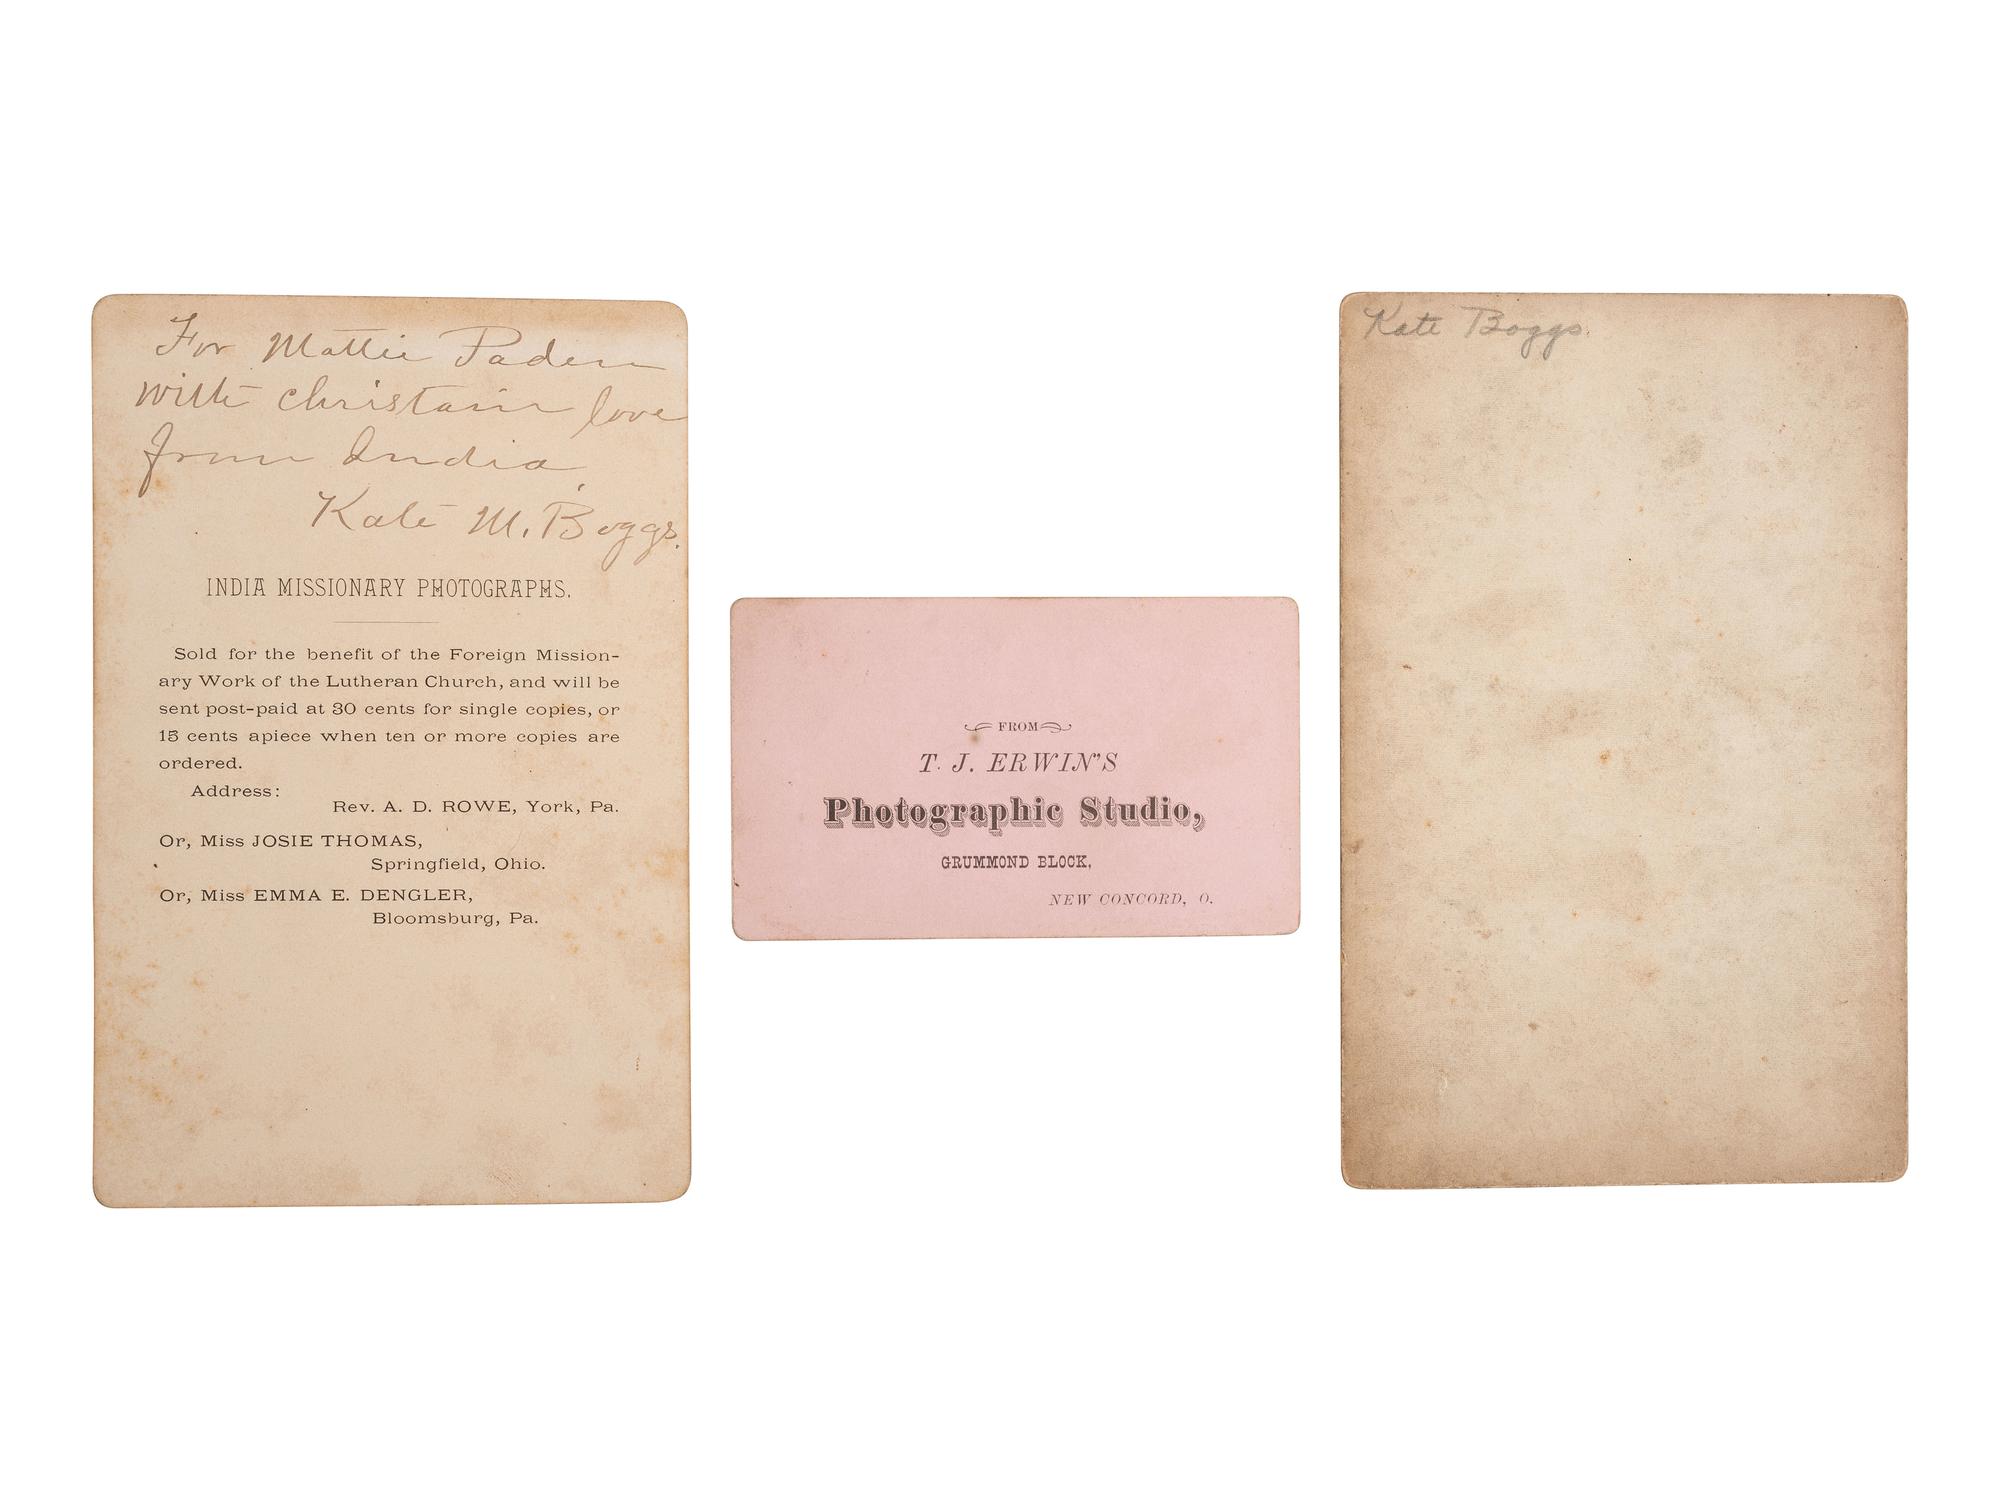 For Mattie Paden
with christain love
from India
Kate M. Boggs.
INDIA MISSIONARY PHOTOGRAPHS.
Sold for the benefit of the Foreign Mission-
ary Work of the Lutheran Church, and will be
sent post-paid at 30 cents for single copies, or
15 cents apiece when ten or more copies are
ordered.
Address:
Rev. A. D. ROWE, York, Pa.
Or, Miss JOSIE THOMAS,
Springfield, Ohio.
Or, Miss EMMA E. DENGLER,
Bloomsburg, Pa.
FROM
T. J. ERWIN'S
Photographic Studio,
GRUMMOND BLOCK,
NEW CONCORD, O.
Kate Boggs.